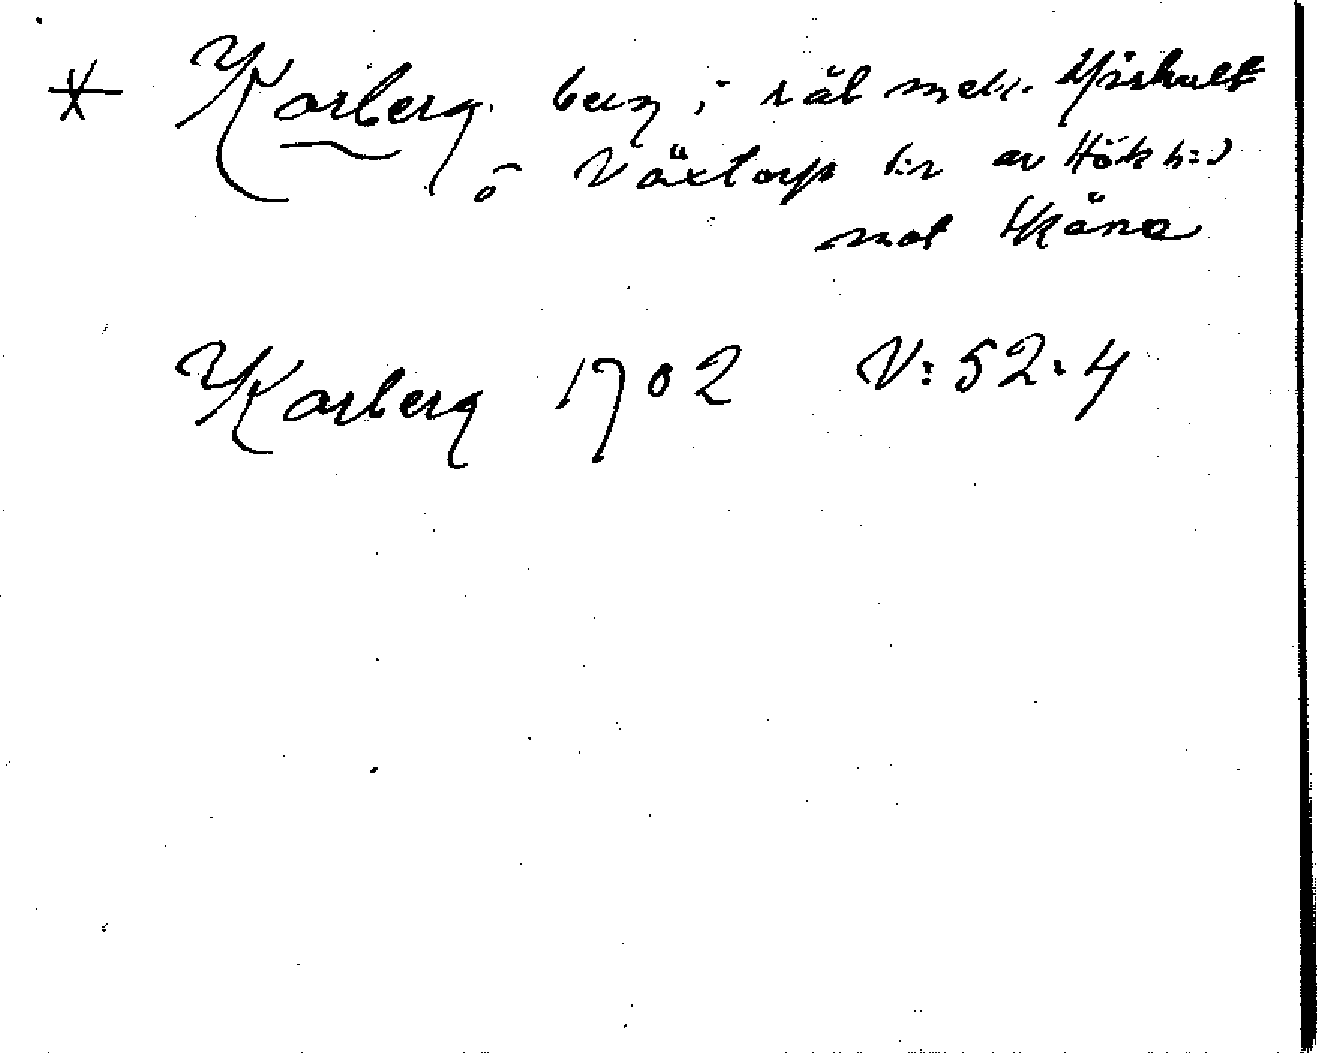 * Karberg. berg i råb mell. Mjärhult
o Växtorp sn av Hök h:d
mot Skåne
Karberg 1702 V:52:4